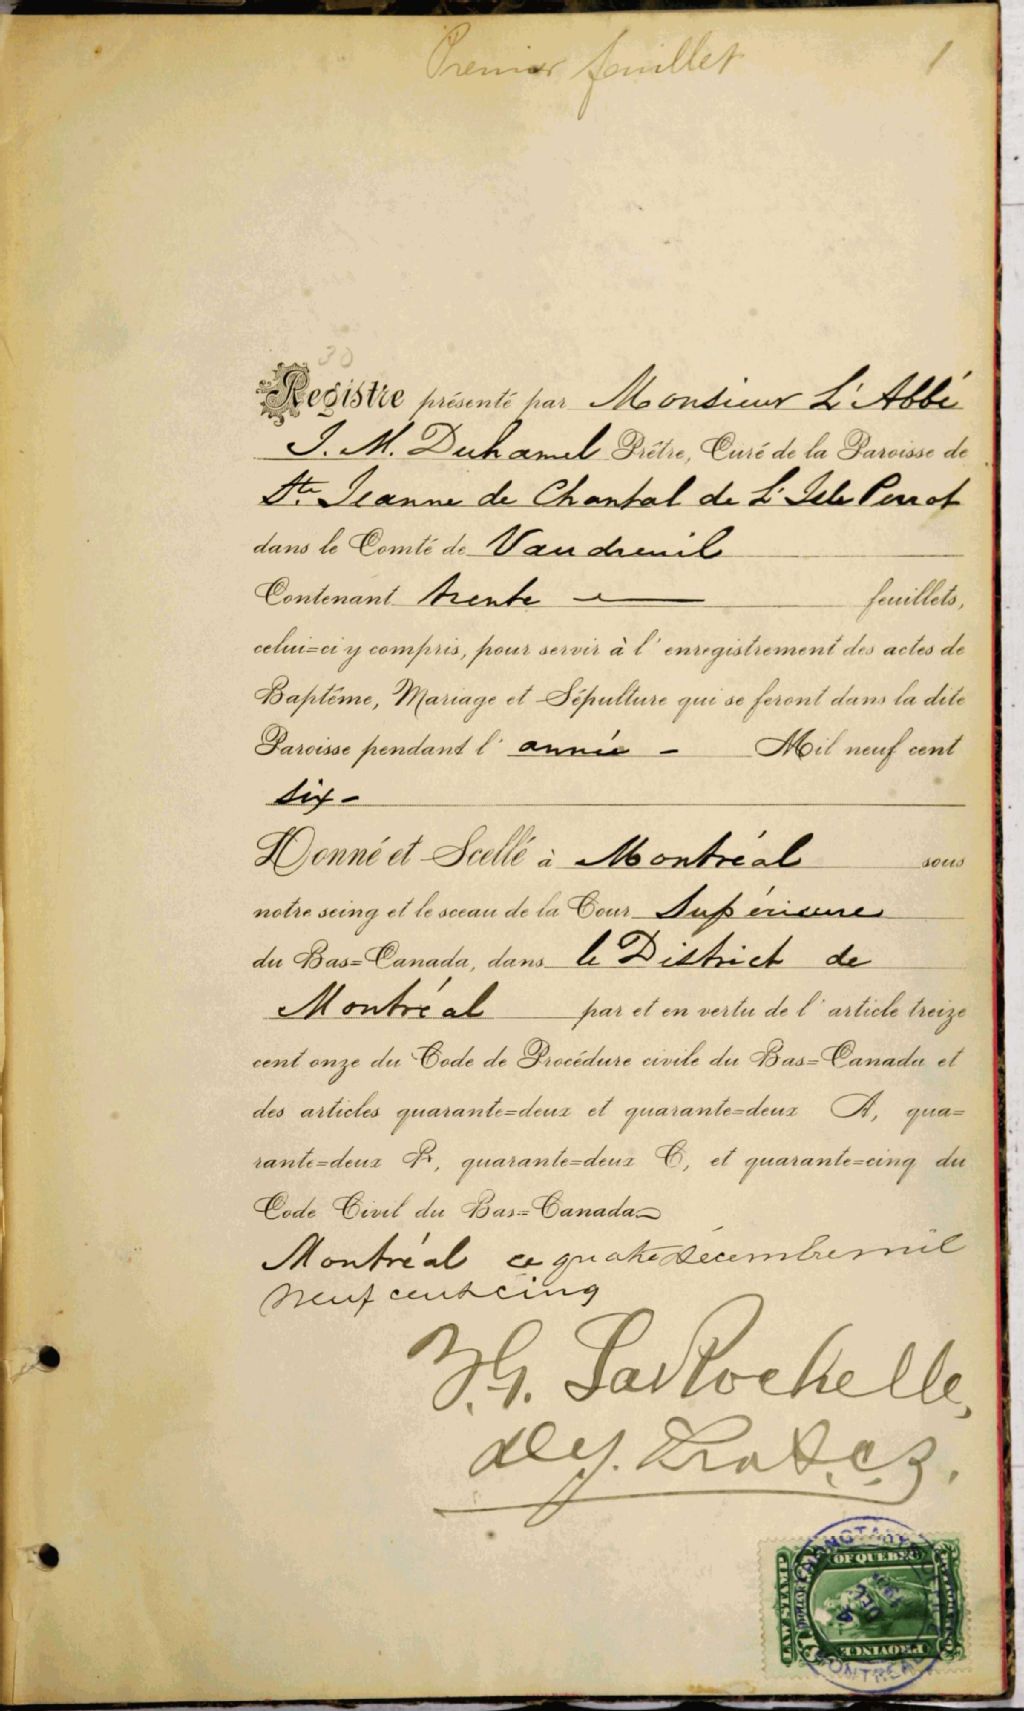 Premier feuillet 1
30
Registre présenté par Monsieur L'Abbé
J. M. Duhamel Prêtre, Curé de la Paroisse de
Ste Jeanne de Chantal de L'Isle Perrot
dans le Comté de Vaudreuil
Contenant trente feuillets,
celui=ci y compris, pour servir à l'enregistrement des actes de
Baptême, Mariage et Sépulture qui se feront dans la dite
Paroisse pendant l'année - Mil neuf cent
six -
Donné et Scellé à Montréal sous
notre seing et le sceau de la Cour Supérieure
du Bas=Canada, dans le District de
Montréal par et en vertu de l'article treize
cent onze du Code de Procédure civile du Bas=Canada et
des articles quarante=deux et quarante=deux A, qua=
rante=deux B, quarante=deux C, et quarante=cinq du
Code Civil du Bas=Canada
Montréal ce quatre décembre mil
neuf cent cinq
LaRochelle,
Dep. Prot. C.S.
OF QUEBEC
LAW STAMP
DEC 4
PROVINCE
MONTREAL